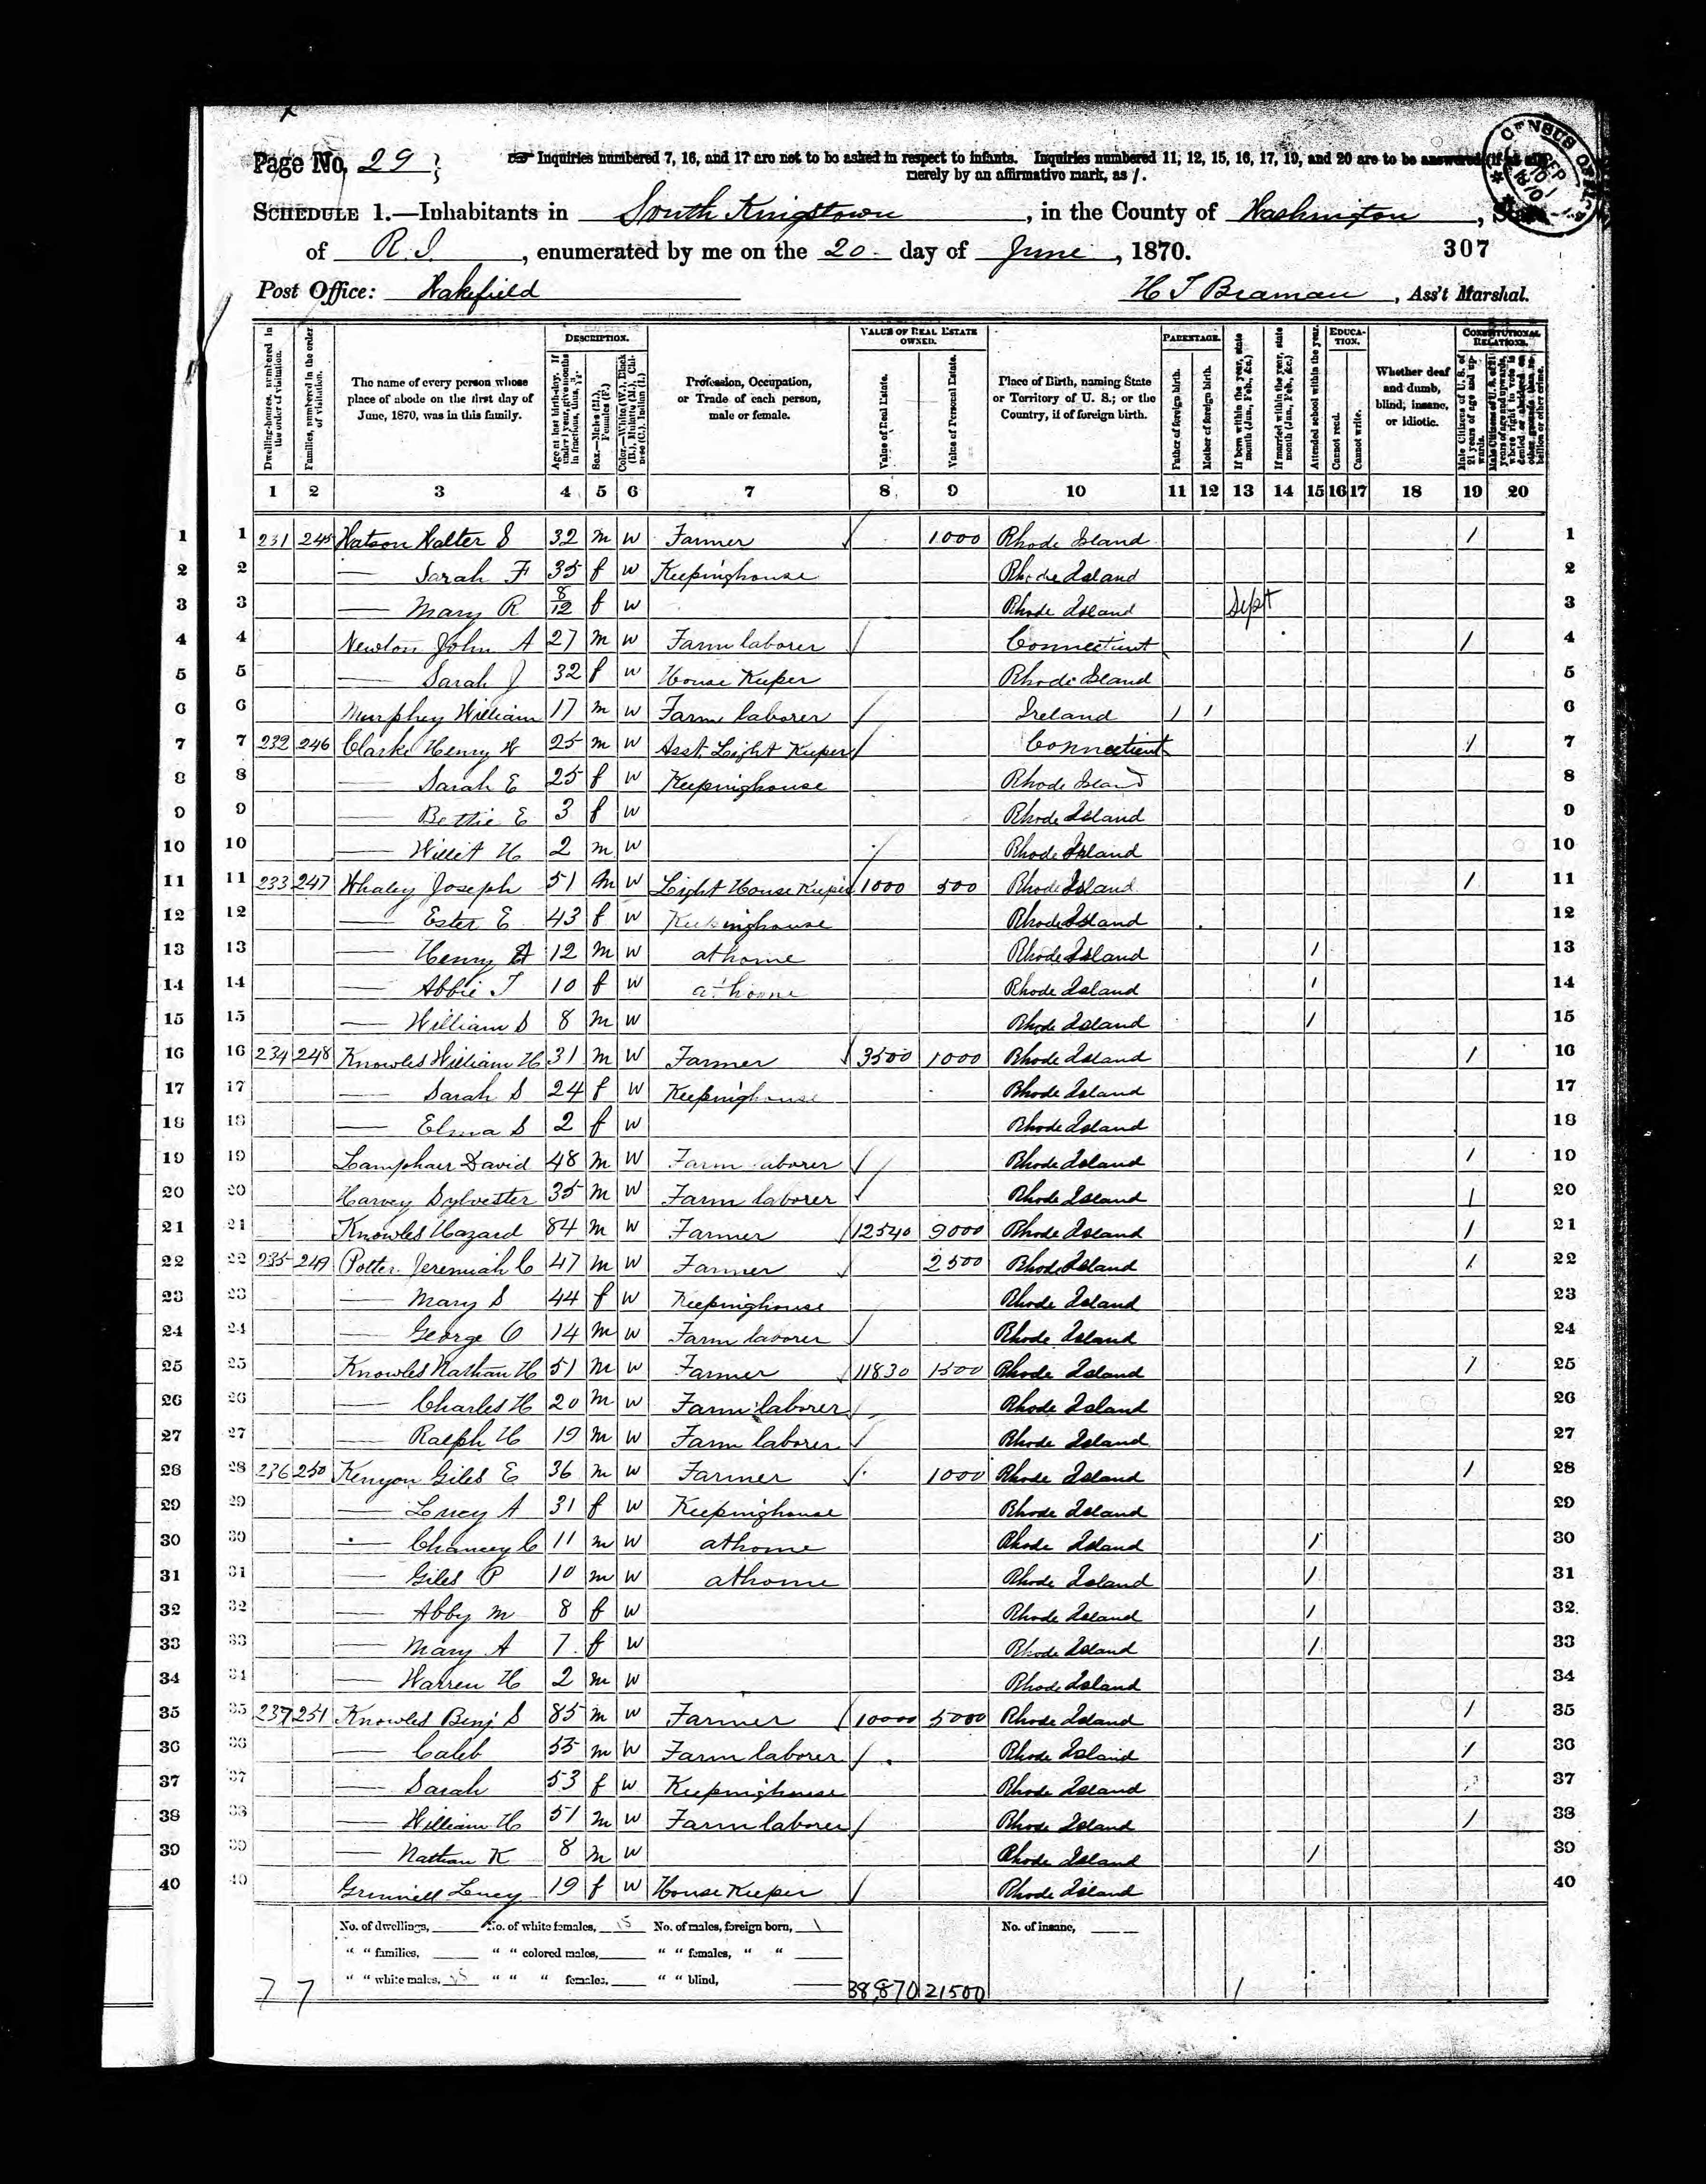 Page No. 29
Inquiries numbered 7, 16, and 17 are not to be asked in respect to infants. Inquiries numbered 11, 12, 15, 16, 17, 19, and 20 are to be answered (if at all)
merely by an affirmative mark, as /.
CENSUS OF
SEP
1870
SCHEDULE 1.—Inhabitants in South Kingstown, in the County of Washington, State
of R.I., enumerated by me on the 20 day of June, 1870. 307
Post Office: Wakefield H T Braman, Ass't Marshal.
Dwelling-houses, numbered in the order of visitation.
Families, numbered in the order of visitation.
The name of every person whose place of abode on the first day of June, 1870, was in this family.
DESCRIPTION.
Age at last birth-day. If under 1 year, give months in fractions, thus, 3/12.
Sex.—Males (M.), Females (F.)
Color.—White (W.), Black (B.), Mulatto (M.), Chinese (C.), Indian (I.)
Profession, Occupation, or Trade of each person, male or female.
VALUE OF REAL ESTATE OWNED.
Value of Real Estate.
Value of Personal Estate.
Place of Birth, naming State or Territory of U. S.; or the Country, if of foreign birth.
PARENTAGE.
Father of foreign birth.
Mother of foreign birth.
If born within the year, state month (Jan., Feb., &c.)
If married within the year, state month (Jan., Feb., &c.)
Attended school within the year.
EDUCATION.
Cannot read.
Cannot write.
Whether deaf and dumb, blind, insane, or idiotic.
CONSTITUTIONAL RELATIONS.
Male Citizens of U. S. of 21 years of age and upwards.
Male Citizens of U. S. of 21 years of age and upwards, where right to vote is denied or abridged on other grounds than rebellion or other crime.
1 2 3 4 5 6 7 8 9 10 11 12 13 14 15 16 17 18 19 20
1 1 231 245 Watson Walter S 32 m W Farmer 1000 Rhode Island / 1
2 2 — Sarah F 35 f W Keepinghouse Rhode Island 2
3 3 — Mary R 8/12 f W Rhode Island Sept 3
4 4 Newton John A 27 m W Farm laborer Connecticut / 4
5 5 — Sarah J 32 f W House Keeper Rhode Island 5
6 6 Murphey William 17 m W Farm laborer Ireland / / 6
7 7 232 246 Clarke Henry W 25 m W Asst. Light Keeper Connecticut / 7
8 8 — Sarah E 25 f W Keepinghouse Rhode Island 8
9 9 — Bettie E 3 f W Rhode Island 9
10 10 — Willet H 2 m W Rhode Island 10
11 11 233 247 Whaley Joseph 51 m W Light House Keeper 1000 500 Rhode Island / 11
12 12 — Ester E 43 f W Keepinghouse Rhode Island 12
13 13 — Henry A 12 m W at home Rhode Island / 13
14 14 — Abbie T 10 f W at home Rhode Island / 14
15 15 — William S 8 m W Rhode Island / 15
16 16 234 248 Knowles William H 31 m W Farmer 3500 1000 Rhode Island / 16
17 17 — Sarah S 24 f W Keepinghouse Rhode Island 17
18 18 — Elma S 2 f W Rhode Island 18
19 19 Lamphaer David 48 m W Farm laborer Rhode Island / 19
20 20 Harvey Sylvester 35 m W Farm laborer Rhode Island / 20
21 21 Knowles Hazard 84 m W Farmer 12540 9000 Rhode Island / 21
22 22 235 249 Potter Jeremiah C 47 m W Farmer 2500 Rhode Island / 22
23 23 — Mary S 44 f W Keepinghouse Rhode Island 23
24 24 — George O 14 m W Farm laborer Rhode Island 24
25 25 Knowles Nathan H 51 m W Farmer 11830 1500 Rhode Island / 25
26 26 — Charles H 20 m W Farm laborer Rhode Island 26
27 27 — Ralph H 19 m W Farm laborer Rhode Island 27
28 28 236 250 Kenyon Giles E 36 m W Farmer 1000 Rhode Island / 28
29 29 — Lucy A 31 f W Keepinghouse Rhode Island 29
30 30 — Chancey C 11 m W at home Rhode Island / 30
31 31 — Giles P 10 m W at home Rhode Island / 31
32 32 — Abby M 8 f W Rhode Island / 32
33 33 — Mary A 7 f W Rhode Island / 33
34 34 — Warren H 2 m W Rhode Island 34
35 35 237 251 Knowles Benj S 85 m W Farmer 10000 5000 Rhode Island / 35
36 36 — Caleb 55 m W Farm laborer Rhode Island / 36
37 37 — Sarah 53 f W Keepinghouse Rhode Island 37
38 38 — William H 51 m W Farm laborer Rhode Island / 38
39 39 — Nathan K 8 m W Rhode Island / 39
40 40 Grinnell Lucy 19 f W House Keeper Rhode Island 40
No. of dwellings, No. of white females, 15 No. of males, foreign born, 1 No. of insane,
" " families, " " colored males, " " females, " "
" " white males, 25 " " " females, " " blind,
7 7 38,870 21500 1